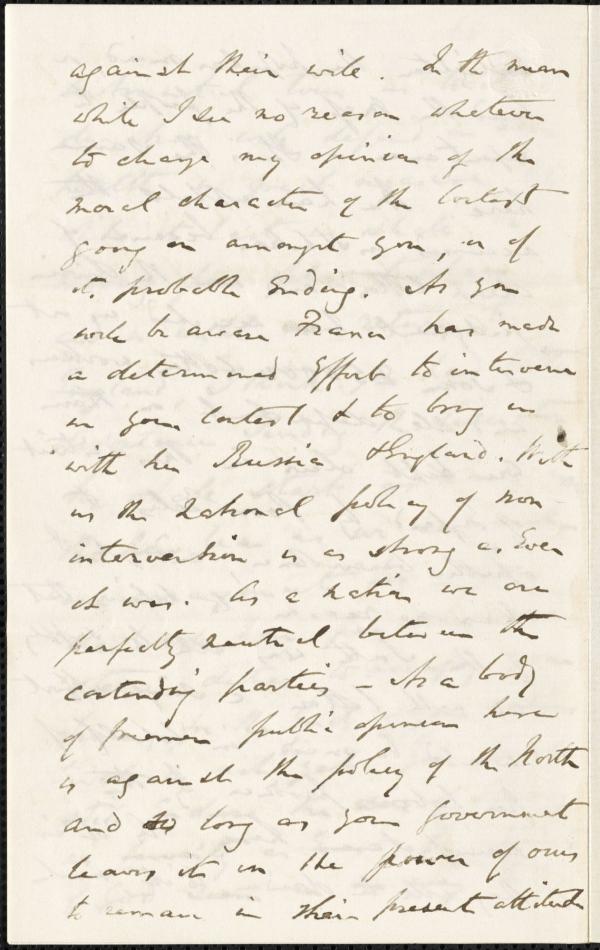 against their will. In the mean
while I see no reason whatever
to change my opinion of the
moral character of the contest
going on amongst you, or of
its probable Ending. As you
will be aware France has made
a determined Effort to intervene
in your contest & to bring in
with her Russia & England. With
us the national policy of non-
intervention is as strong as Ever
it was. As a nation we are
perfectly neutral between the
contending parties - As a body
of freemen public opinion here
is against the policy of the North
and so long as your government
leaves it in the power of ours
to remain in their present attitude